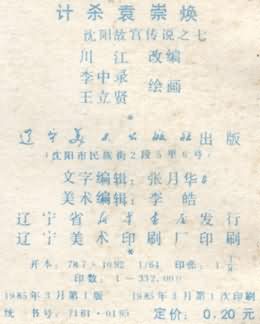 计杀袁崇焕
沈阳故宫传说之七
川江 改编
李中录
王立贤 绘画
辽宁美术出版社出版
(沈阳市民族街2段5里6号)
文字编辑：张月华
美术编辑：李皓
辽宁省新华书店发行
辽宁美术印刷厂印刷
开本：787×1092 1/64 印张：1
印数：1—332,000
1985年3月第1版 1985年3月第1次印刷
统一书号：7161·0195 定价：0.20元